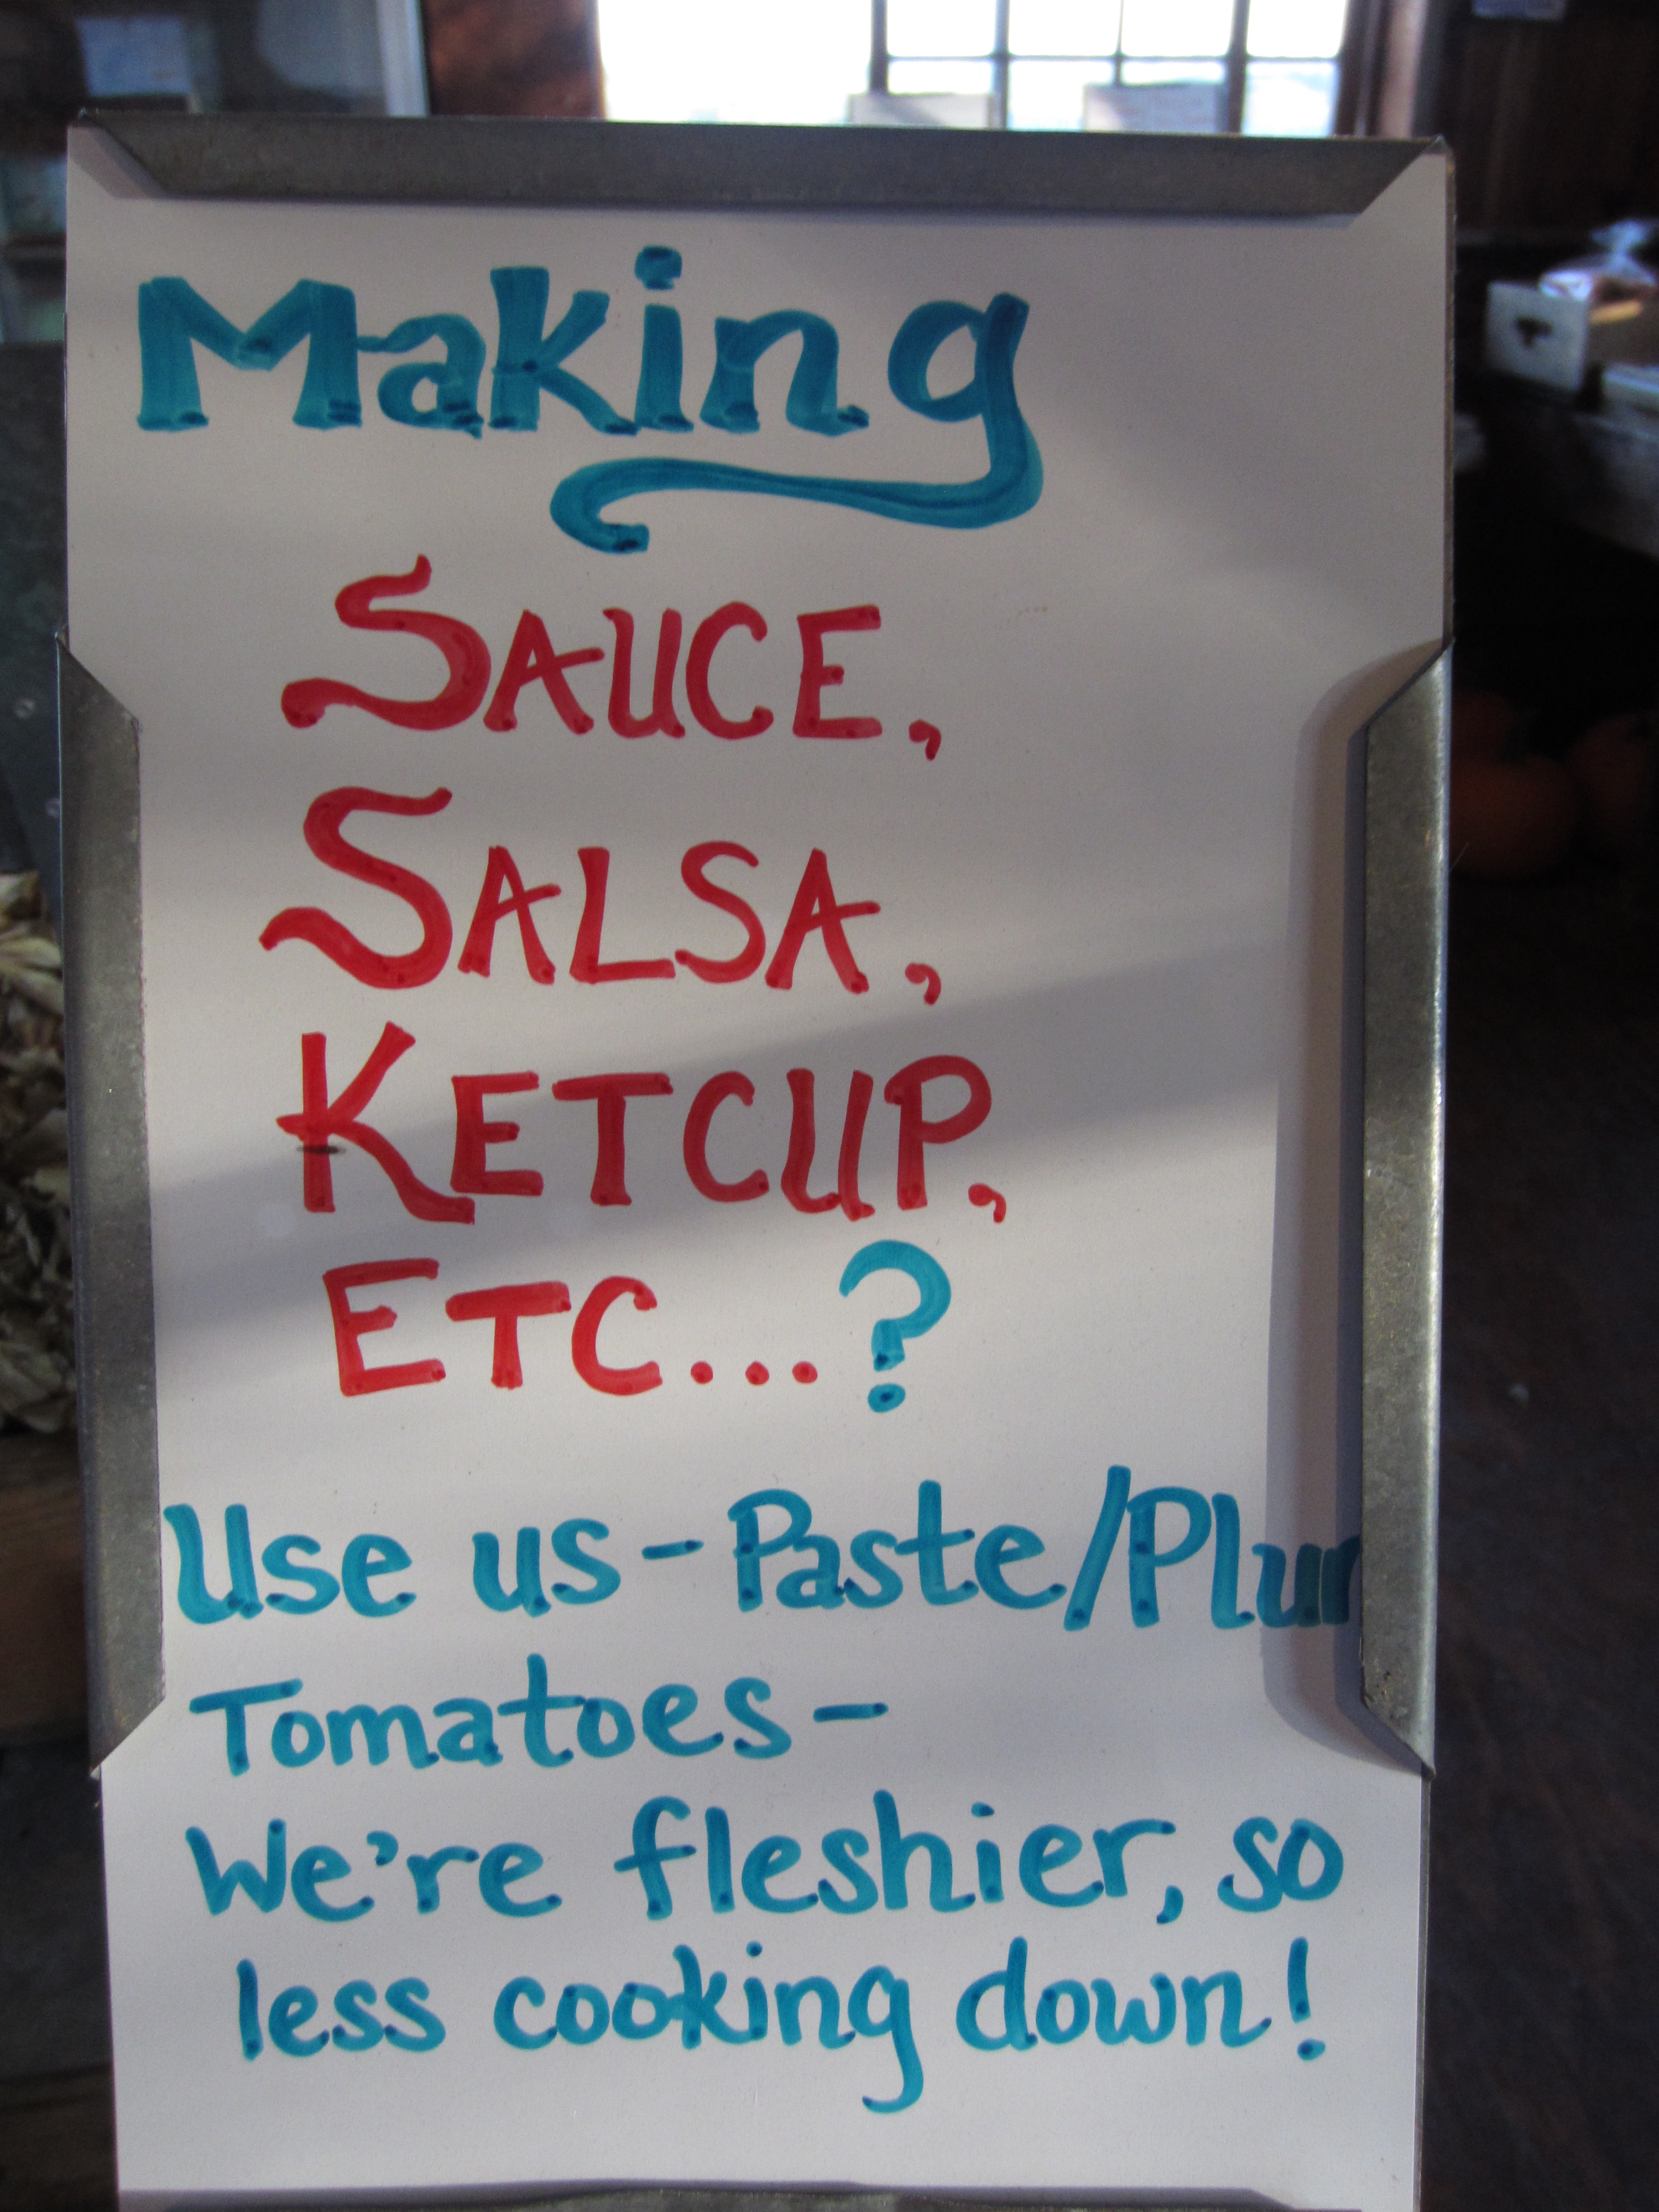 Making
SAUCE,
SALSA,
KETCUP,
ETC...?
Use us - Paste/Plum
Tomatoes -
We're fleshier, so
less cooking down!